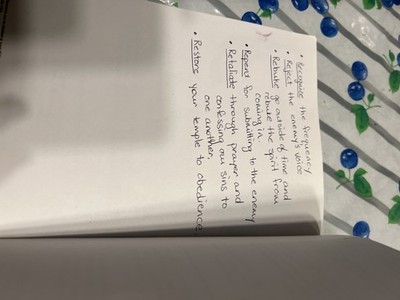 • Recognize the frequency
• Reject the enemy's voice
• Rebuke go outside of time and
rebuke the spirit from
coming in.
• Repent for submitting to the enemy
• Retaliate through prayer and
confessing our sins to
one another.
• Restore your temple to obedience